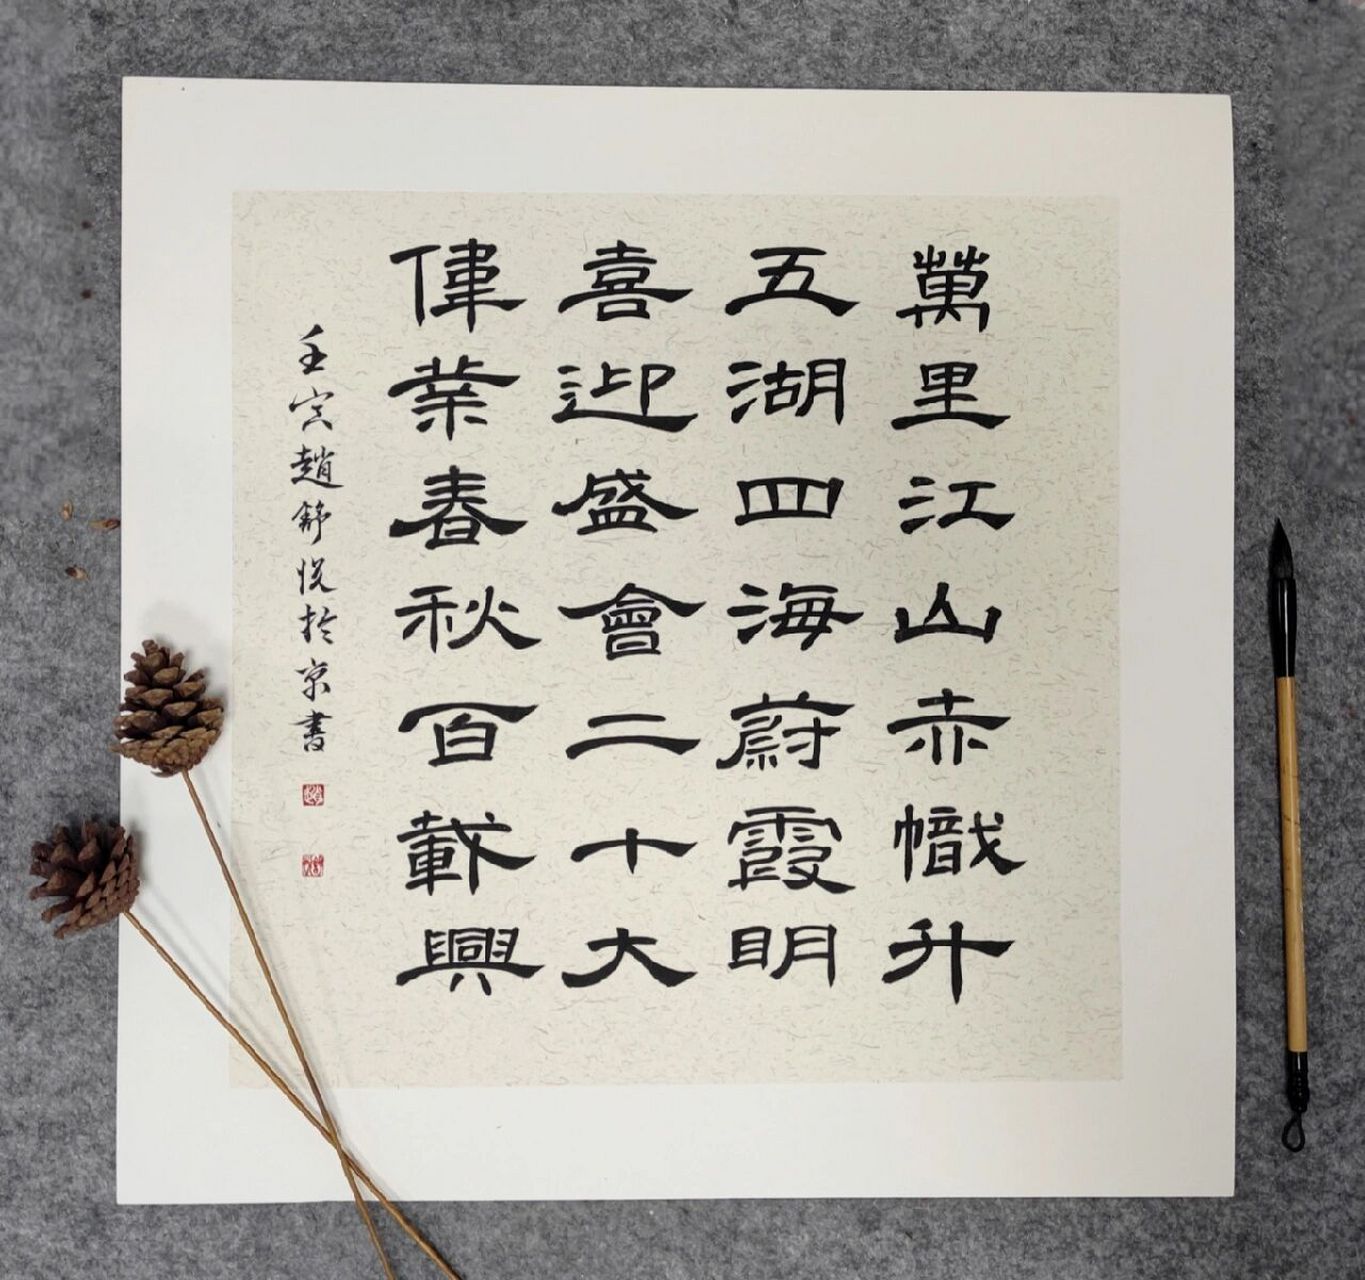 萬里江山赤幟升
五湖四海蔚霞明
喜迎盛會二十大
偉業春秋百載興
壬寅趙舒悦於京書